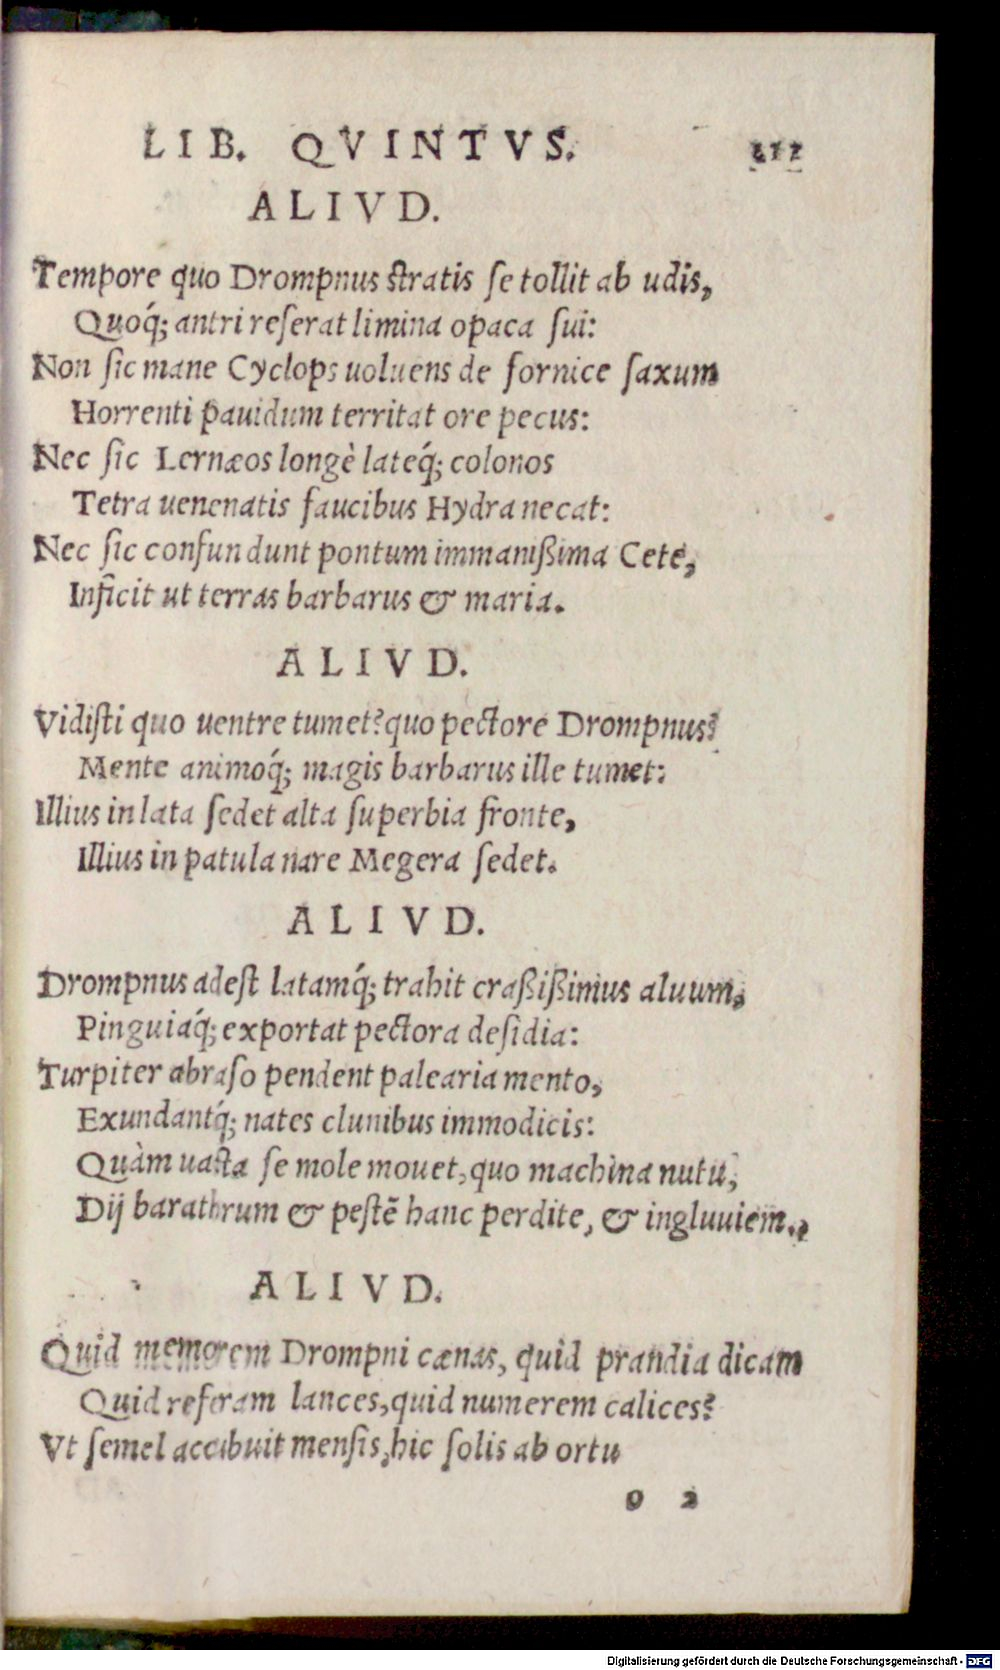 LIB. QVINTVS.
ALIVD.
Tempore quo Drompnus stratis se tollit ab udis,
Quoq́; antri reserat limina opaca sui:
Non sic mane Cyclops uoluens de fornice saxum
Horrenti pauidum territat ore pecus:
Nec sic Lernæos longè lateq́; colonos
Tetra uenenatis faucibus Hydra necat:
Nec sic confundunt pontum immanißima Cete,
Inficit ut terras barbarus & maria.
ALIVD.
Vidisti quo uentre tumet? quo pectore Drompnus?
Mente animoq́; magis barbarus ille tumet:
Illius in lata sedet alta superbia fronte,
Illius in patula nare Megera sedet.
ALIVD.
Drompnus adest latamq́; trahit craßißimus aluum,
Pinguiaq́; exportat pectora desidia:
Turpiter abraso pendent palearia mento,
Exundantq́; nates clunibus immodicis:
Quàm uasta se mole mouet, quo machina nutu,
Dij barathrum & pestē hanc perdite, & ingluuiem.
ALIVD.
Quid memorem Drompni cænas, quid prandia dicam
Quid referam lances, quid numerem calices?
Vt semel accubuit mensis, hic solis ab ortu
o 2
Digitalisierung gefördert durch die Deutsche Forschungsgemeinschaft - DFG